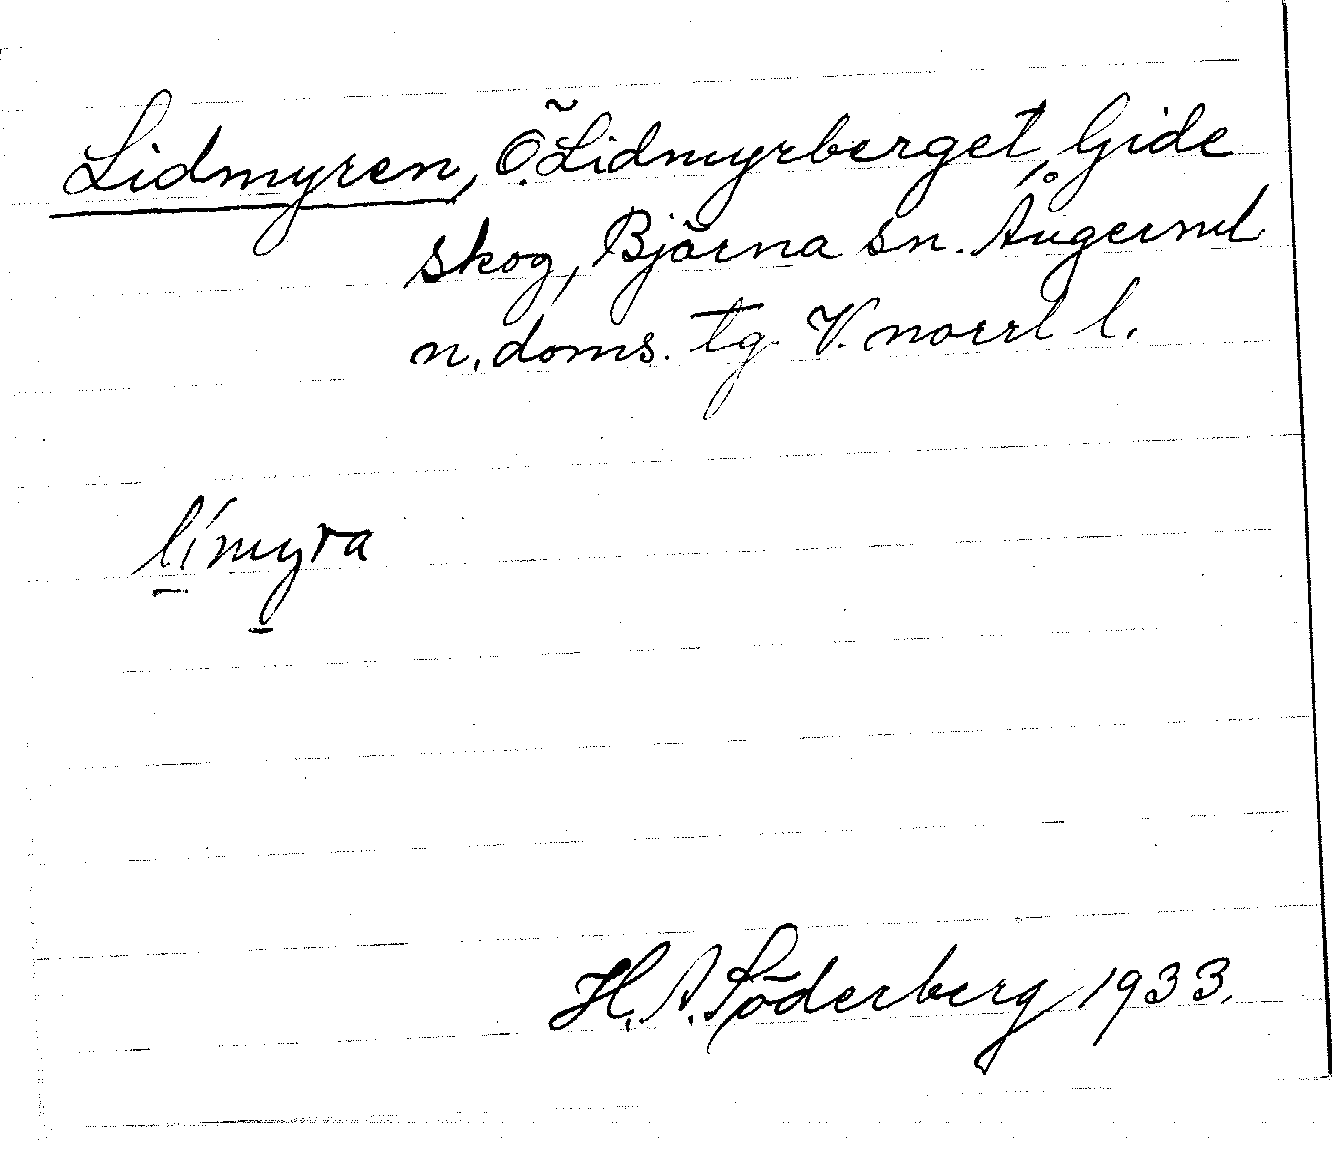 Lidmyren, Ö. Lidmyrberget, Gide
skog, Björna sn. Ångerml
n. doms. tg. V. norrl l.
límyra
H. A. Söderberg 1933.